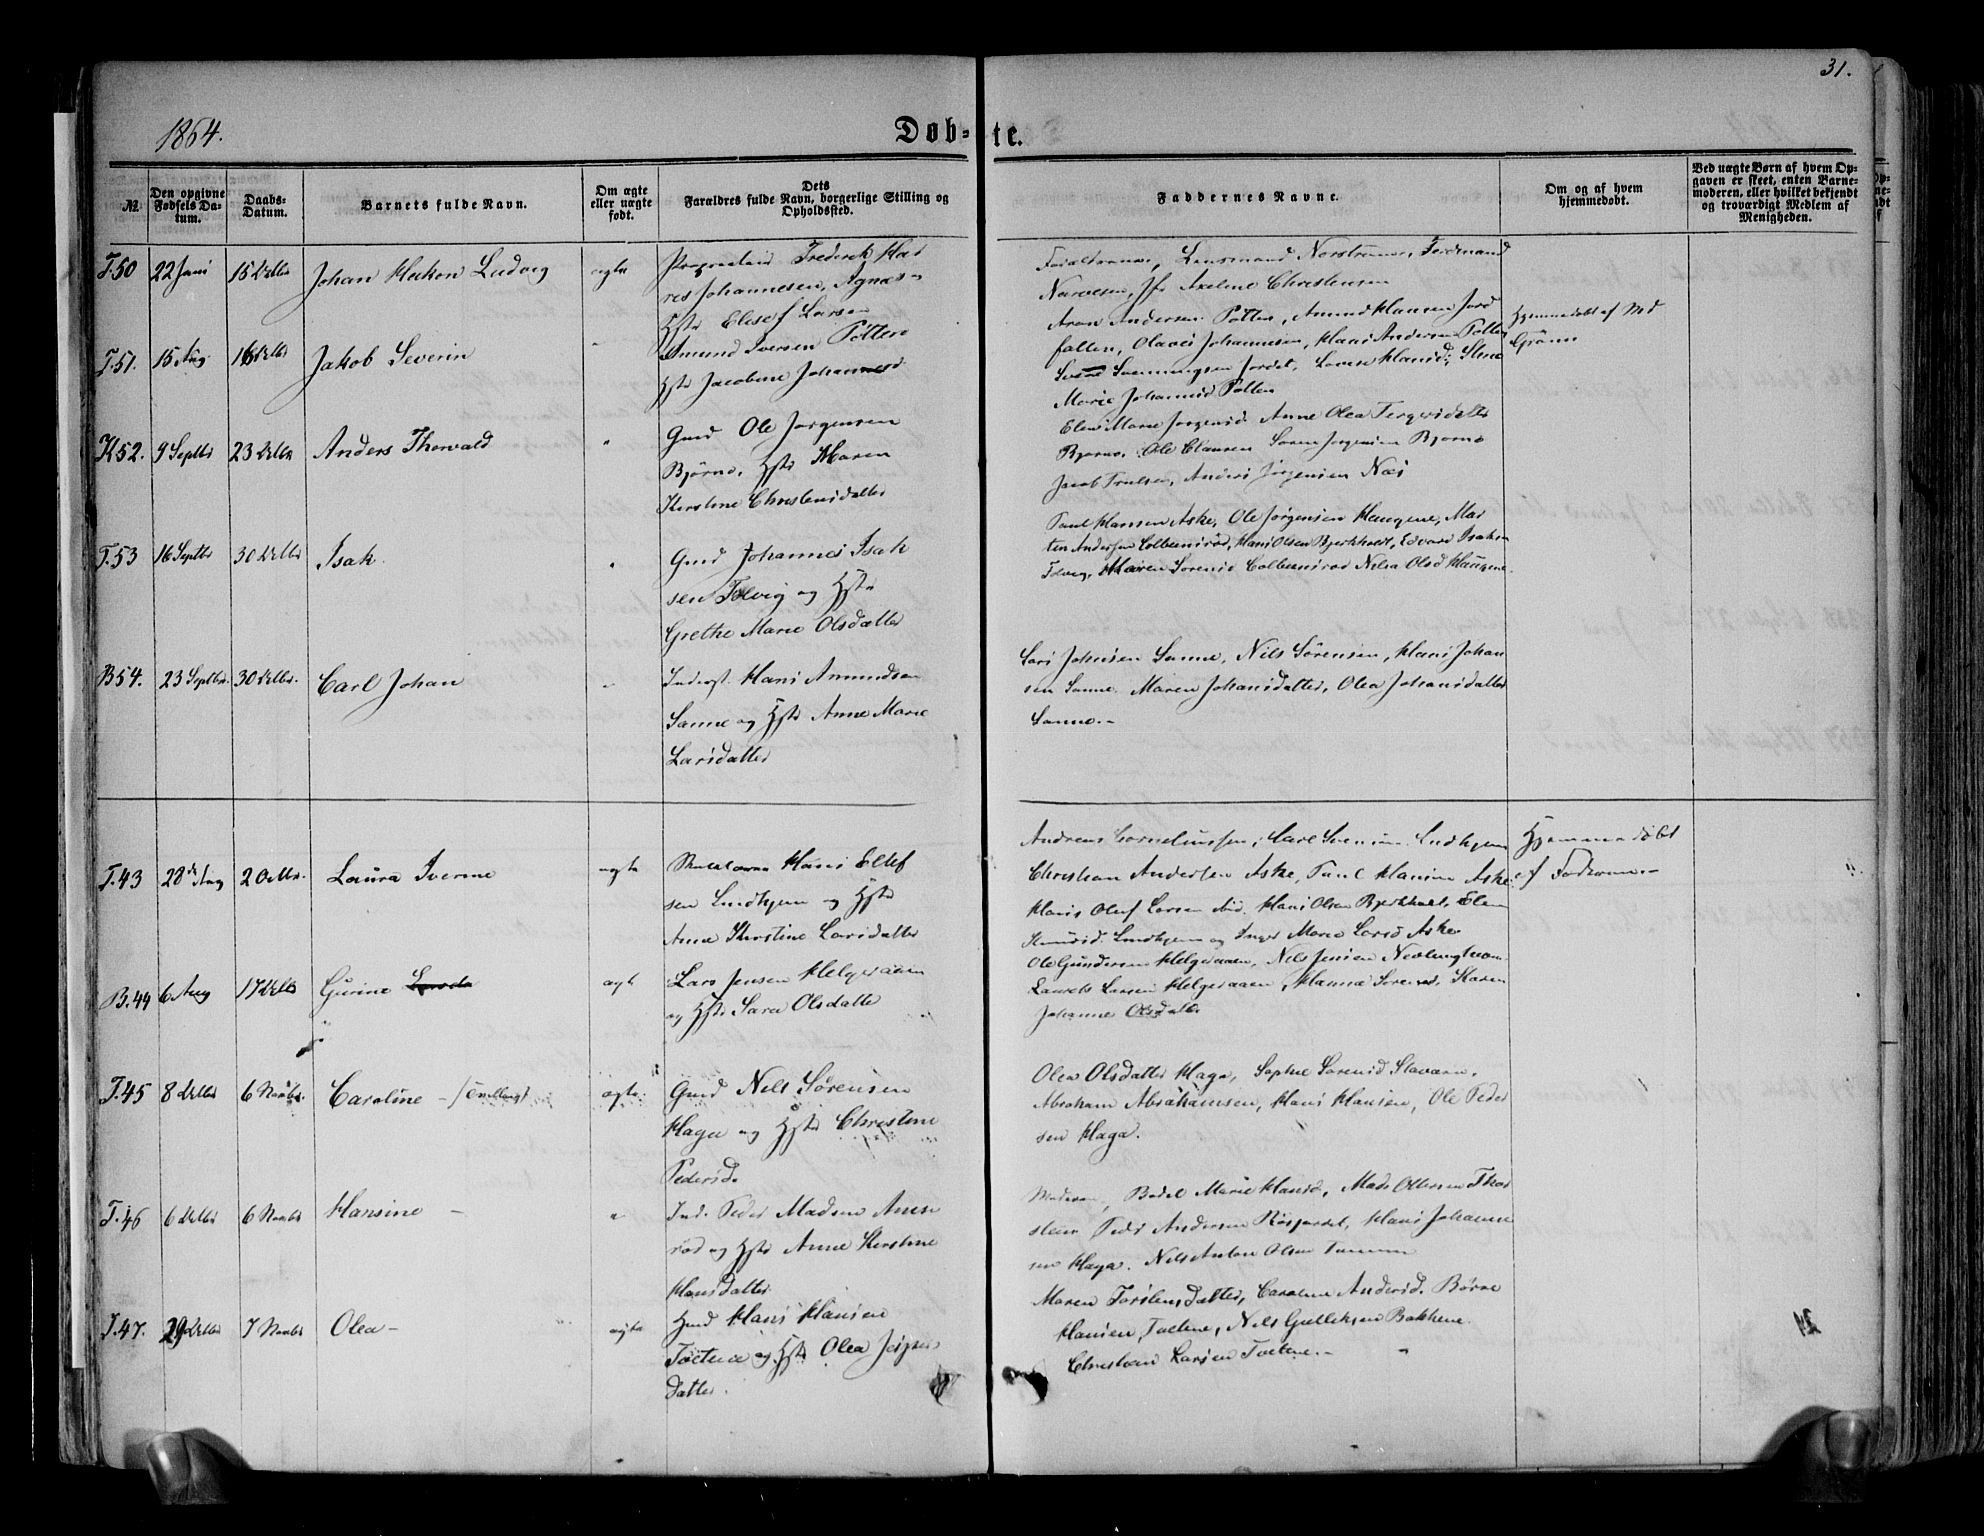 31.
1864.
Døb-te.
№
Den opgivne Fødsels Datum.
Daabs-Datum.
Barnets fulde Navn.
Om ægte eller uægte født.
Dets Forældres fulde Navn, borgerlige Stilling og Opholdssted.
Faddernes Navne.
Om og af hvem hjemmedøbt.
Ved uægte Børn af hvem Opgaven er skeet, enten Barnemoderen, eller hvilket bekjendt og troværdigt Medlem af Menigheden.
T.50 22 Juni 15 Octbr Johan Hakon Ludvig ægte
Frederik Hal
Johannesen, Agnes
Hst Elisef Larsen
Lensmand Nordstrøm, Ferdinand
Narvesen, Jfr Axeline Christensen
T.51. 15 Aug 16 Octbr Jakob Severin "
Amund Iversen Pølten
Hst Jacobine Johannesd
Aron Andersen Pølten, Amund Hansen Jord
falten, Olaves Johannesen, Hans Andersen Polten
Svenningsen Jordet, Lovise Hansd; Stine
Marie Johannisd Polten
Hjemmedøbt af Md
Grønn
K52. 9 Septbr 23 Octbr Anders Thorvald "
Gmd Ole Jørgensen
Bjørnø, Hst Maren
Kirstine Christensdatter
Elen Marie Jørgensd Anne Olea Torgersdatter
Bjørnø, Ole Clausen Søren Jørgensen Bjørnø
Jacob Trulsen, Anders Jørgensen Næs
T.53 16 Septbr 30 Octbr Isak "
Gmd Johannes Isak
sen Tolvig og Hst
Grethe Marie Olsdatter
Paul Hansen Aske, Ole Jørgensen Haugene, Mar
tin Andersen Colbensrød, Hans Olsen Bjerkholt, Edvard Isaksen
Tolvig, Maren Sørensd Colbensrød Nilia Olsd Haugene.
B54. 23 Septbr. 30 Octbr. Carl Johan "
Inderst. Hans Amundsen
Sanne og Hst Anne Marie
Larsdatter
Lars Johnsen Sanne, Nils Sørensen, Hans Johan
sen Sanne. Maren Johansdatter, Olea Johansdatter
Sanne.-
T.43 28 Aug 2 Octbr. Laura Iverine ægte
Hans Ellef
sen Lindhjem og Hst
Anne Kirstine Larsdatter
Andreas Corneliussen, Carl Lindhjem
Christian Andersen Aske, Paul Hansen Aske
Hans Oluf Larsen ibid. Hans Olsen Bjerkholt, Elen
Knudsd. Lindhjem og Inger Marie Larsd Aske
Hjemmedøbt
af Fadrene.-
B.44 6 Aug 17 Octbr Gurine ægt
Lars Jensen Helgeraaen
og Hst Sara Olsdatte
Ole Gundersen Helgeraaen, Nils Jensen Nevlunghavn
Laurits Larsen Helgeraaen, Hanna Sørensd, Karen
Johanne Olsdatte
T.45 8 Octbr 6 Novbr. Caroline - (Tvilling) ægte
Gmd Nils Sørensen
Haga og Hst Christine
Pedersd.
Olea Olsdatter Haga, Sophie Sørensd Stavern,
Abraham Abrahamsen, Hans Hansen, Ole Peder
sen Haga.
T.46 6 Octbr 6 Novbr Hansine - "
Ind. Peder Madsen Amse
rød og Hst Anne Kirstine
Hansdatter
Moderen, Bodel Marie Hansd, Mads Ottersen Thor
Peder Andersen Røsjordet, Hans Johanne
sen Haga. Nils Anton Olsen
T.47. 29 Octbr 7 Novbr Olea- ægte
Hmd Hans Hansen
Toltene og Hst Olea Jespers
datter.
Maren Torstensdatter, Caroline Andersd. Børre
Hansen, Toltene, Nils Gulliksen Bakkene.
Christian Larsen Toltene.-